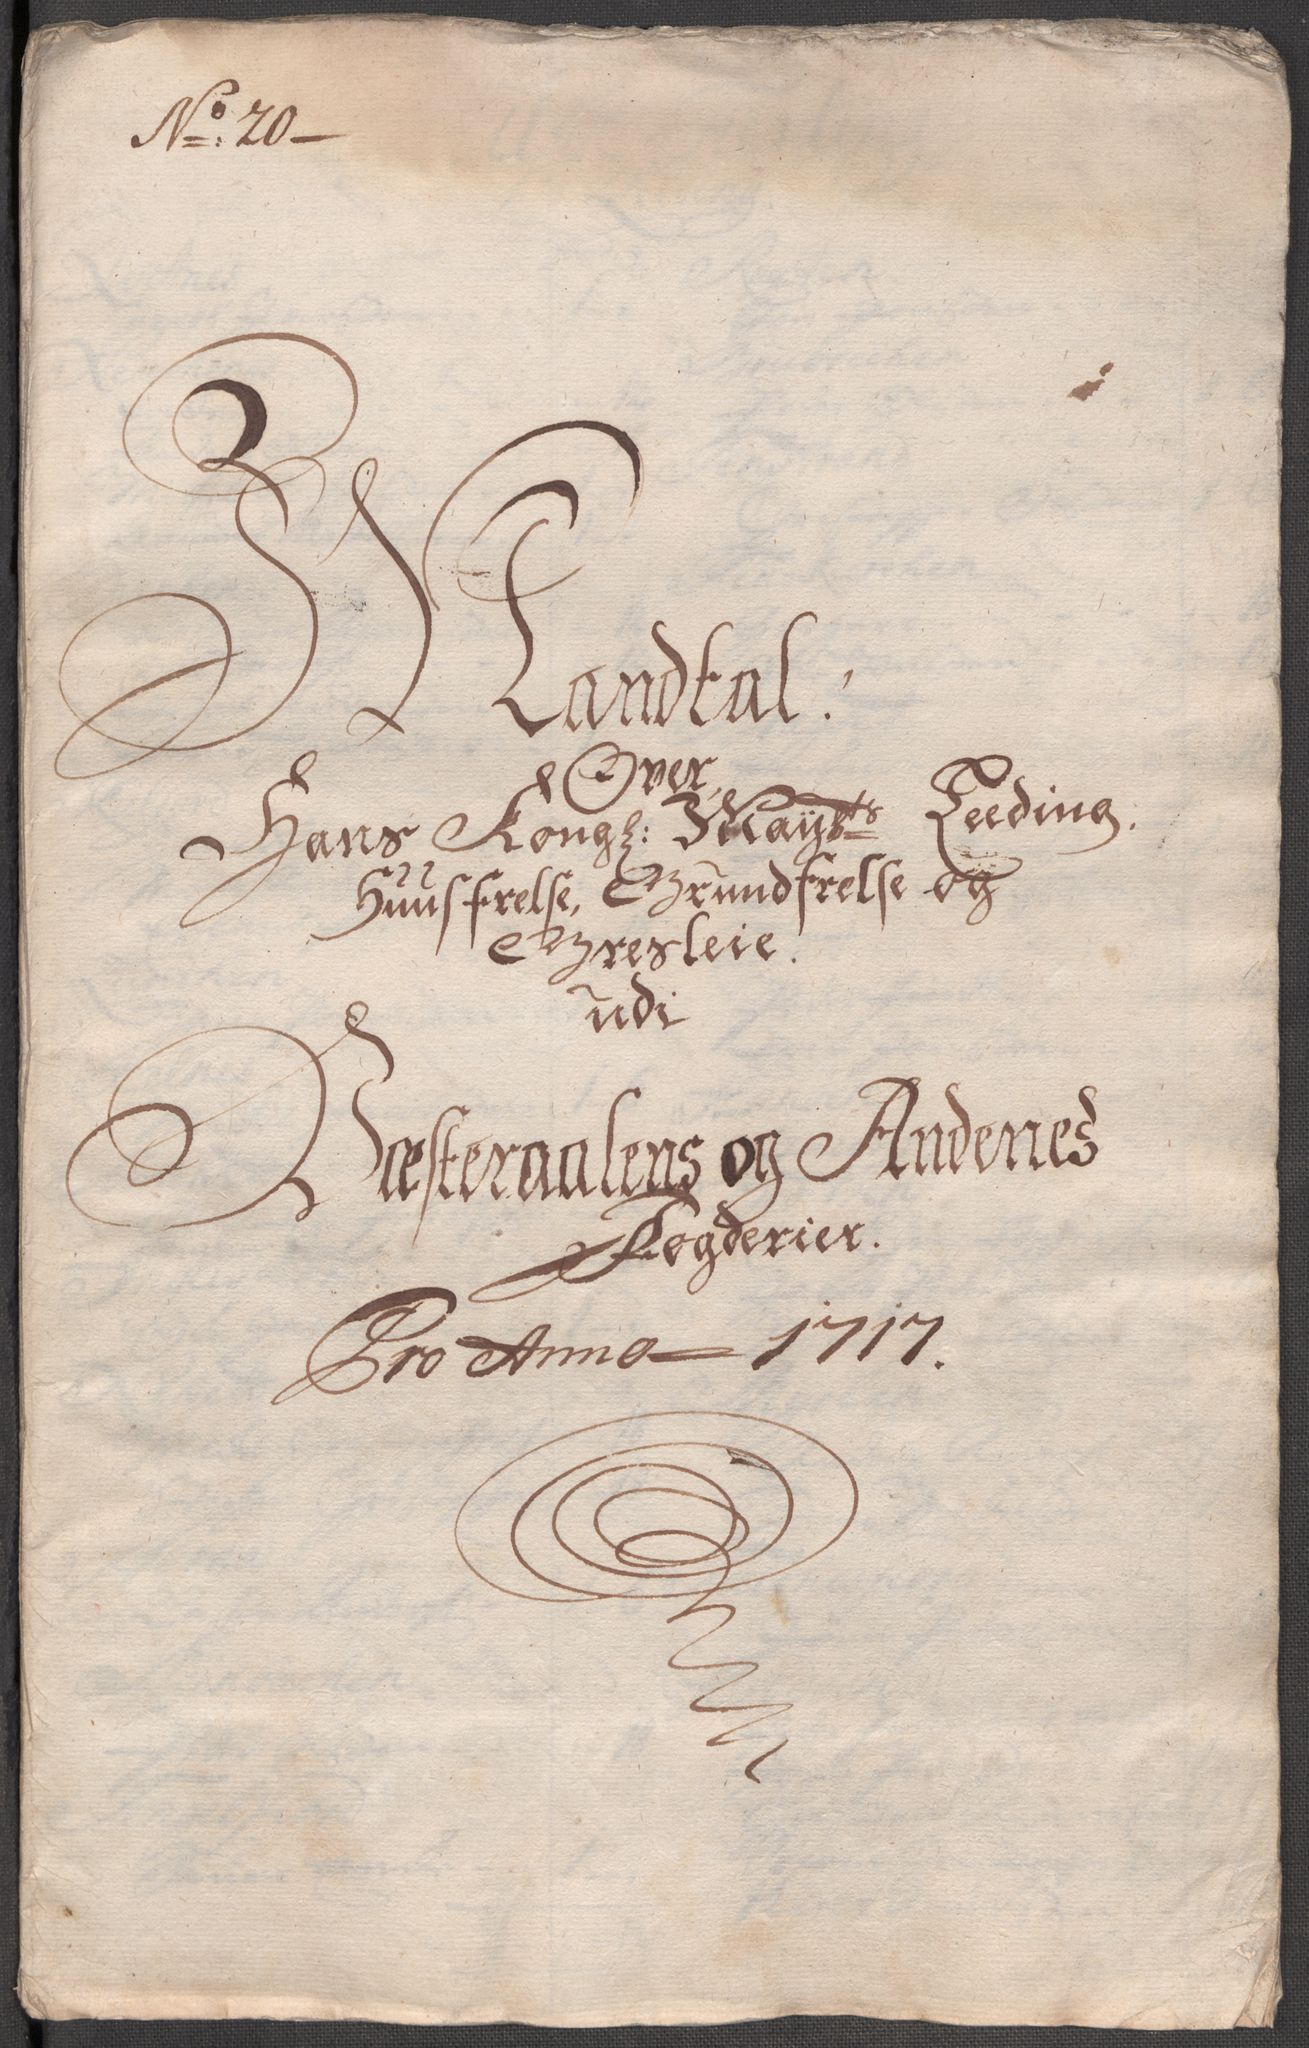 No: 20
Mandtal.
Over
Hans Kongl: Mayts Leeding.
Huusfrelse, Grundfrelse og
Gresleie.
udi
Væsteraalens og Andenes
Fogderier.
Pro Anno 1717.